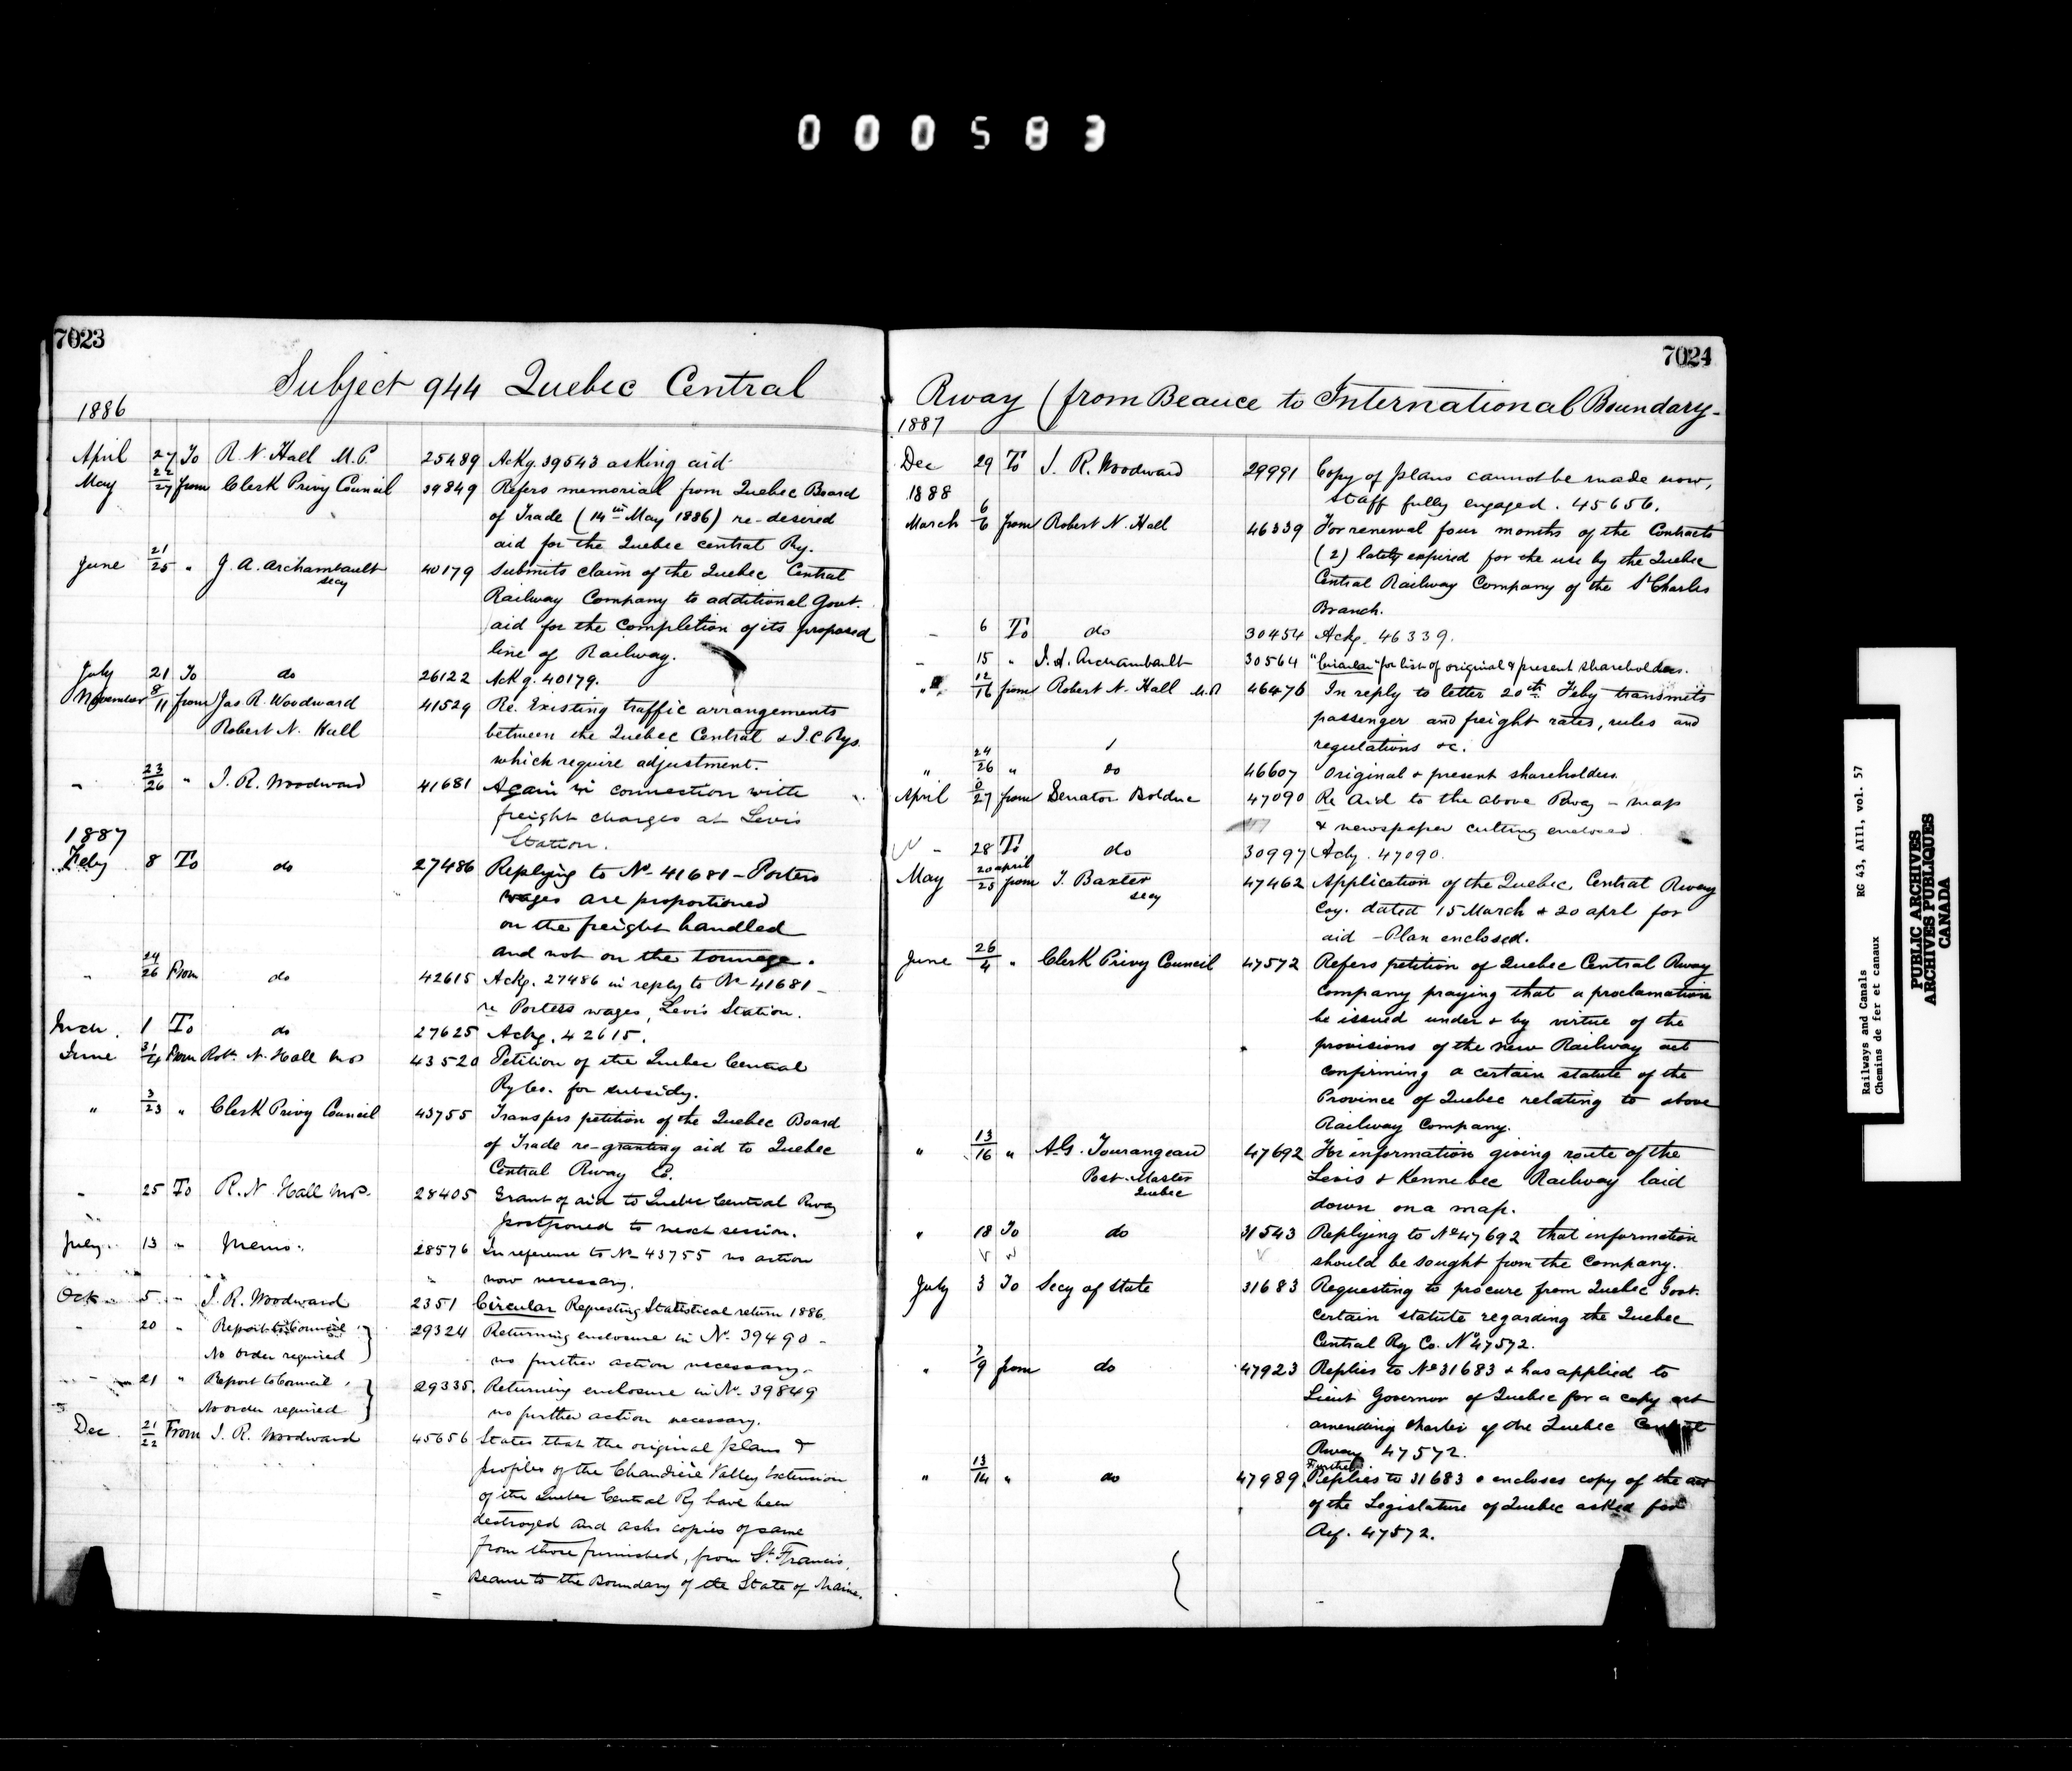 000583
7023
Subject 944 Quebec Central
1886
April 27 To R. N. Hall M.P. 25489 Ackg. 39543 asking aid
May 22/27 from Clerk Privy Council 39849 Refers memorial from Quebec Board
of Trade (14th May 1886) re-desired
aid for the Quebec central Ry.
June 21/25 " J. A. Archambault 40179 Submits claim of the Quebec Central
secy
Railway Company to additional Govt.
aid for the completion of its proposed
line of Railway.
July 21 To do 26122 Ackg. 40179.
November 8/11 from Jas R. Woodward 41529 Re. Existing traffic arrangements
Robert N. Hall between the Quebec Central & I.C. Rys.
which require adjustment.
" 23/26 " J. R. Woodward 41681 Again in connection with
freight charges at Levis
Station.
1887
Feby 8 To do 27486 Replying to No 41681 - Porters
wages are proportioned
on the freight handled
and not on the tonnage.
" 24/26 From do 42615 Ackg. 27486 in reply to No 41681 -
re Porters wages, Levis Station.
Mch. 1 To do 27625 Ackg. 42615.
June From Robt. N. Hall MP 43520 Petition of the Quebec Central
Ry Co. for subsidy.
" 3/23 " Clerk Privy Council 43755 Transfers petition of the Quebec Board
of Trade re-granting aid to Quebec
Central Rway
" 25 To R. N. Hall MP. 28405 Grant of aid to Quebec Central Rway
postponed to next session.
July 13 " Memo. 28576 In reference to No 43755 no action
now necessary.
Oct 5 " J. R. Woodward 2351 Circular Requesting Statistical return 1886.
" 20 " Report to Council 29324 Returning enclosure in No. 39490 -
No order required no further action necessary.
" 21 " Report to Council 29335. Returning enclosure in No. 39849
No order required no further action necessary.
Dec. 21/22 From J. R. Woodward 45656 States that the original plans &
profiles of the Chaudiere Valley Extension
of the Quebec Central Ry have been
destroyed and asks copies of same
from those furnished, from St. Francis,
Beauce to the Boundary of the State of Maine.
7024
Rway (from Beauce to International Boundary-
1887
Dec 29 To J. R. Woodward 29991 Copy of plans cannot be made now,
staff fully engaged. 45656.
1888
March 6/6 from Robert N. Hall 46339 For renewal four months of the Contracts
(2) lately expired for the use by the Quebec
Central Railway Company of the St Charles
Branch.
" 6 To do 30454 Ackg. 46339.
" 15 " J. A. Archambault 30564 "Circular" for list of original & present shareholders.
" 12/16 from Robert N. Hall M.P 46476 In reply to letter 20th Feby transmits
passenger and freight rates, rules and
regulations &c.
" 24/26 " do 46607 Original & present shareholders
April 27 from Senator Bolduc 47090 Re Aid to the above Rway - map
& newspaper cutting enclosed
" 28 To do 30997 Ackg. 47090.
May 20 april/25 from T. Baxter 47462 Application of the Quebec Central Rway
secy
Coy. dated 15 March & 20 aprl for
aid - Plan enclosed.
June 26/4 " Clerk Privy Council 47572 Refers petition of Quebec Central Rway
Company praying that a proclamation
be issued under & by virtue of the
provisions of the new Railway act
confirming a certain statute of the
Province of Quebec relating to above
Railway Company.
" 13/16 " A.G. Tourangeau 47692 For information giving route of the
Post-Master Levis & Kennebec Railway laid
Quebec
down on a map.
" 18 To do 31543 Replying to No 47692 that information
should be sought from the Company.
July 3 To Secy of State 31683 Requesting to procure from Quebec Govt.
certain statute regarding the Quebec
Central Ry Co. No 47572.
" 7/9 from do 47923 Replies to No 31683 & has applied to
Lieut Governor of Quebec for a copy act
amending charter of the Quebec Central
Rway 47572.
" 13/14 " do 47989 Further Replies to 31683 & encloses copy of the act
of the Legislature of Quebec asked for
Ref. 47572.
Railways and Canals RG 43, AIII, vol. 57
Chemins de fer et canaux
PUBLIC ARCHIVES
ARCHIVES PUBLIQUES
CANADA